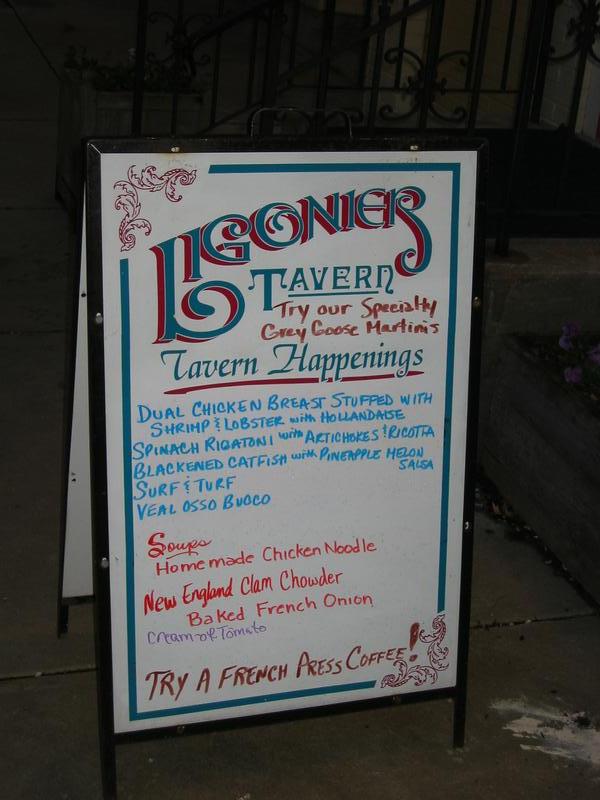 LIGONIER
TAVERN
Try our Specialty
Grey Goose Martinis
Tavern Happenings
DUAL CHICKEN BREAST STUFFED WITH
SHRIMP & LOBSTER with HOLLANDAISE
SPINACH RIGATONI with ARTICHOKES & RICOTTA
BLACKENED CATFISH with PINEAPPLE MELON
SALSA
SURF & TURF
VEAL OSSO BUOCO
Soups
Homemade Chicken Noodle
New England Clam Chowder
Baked French Onion
Cream of Tomato
TRY A FRENCH PRESS COFFEE!